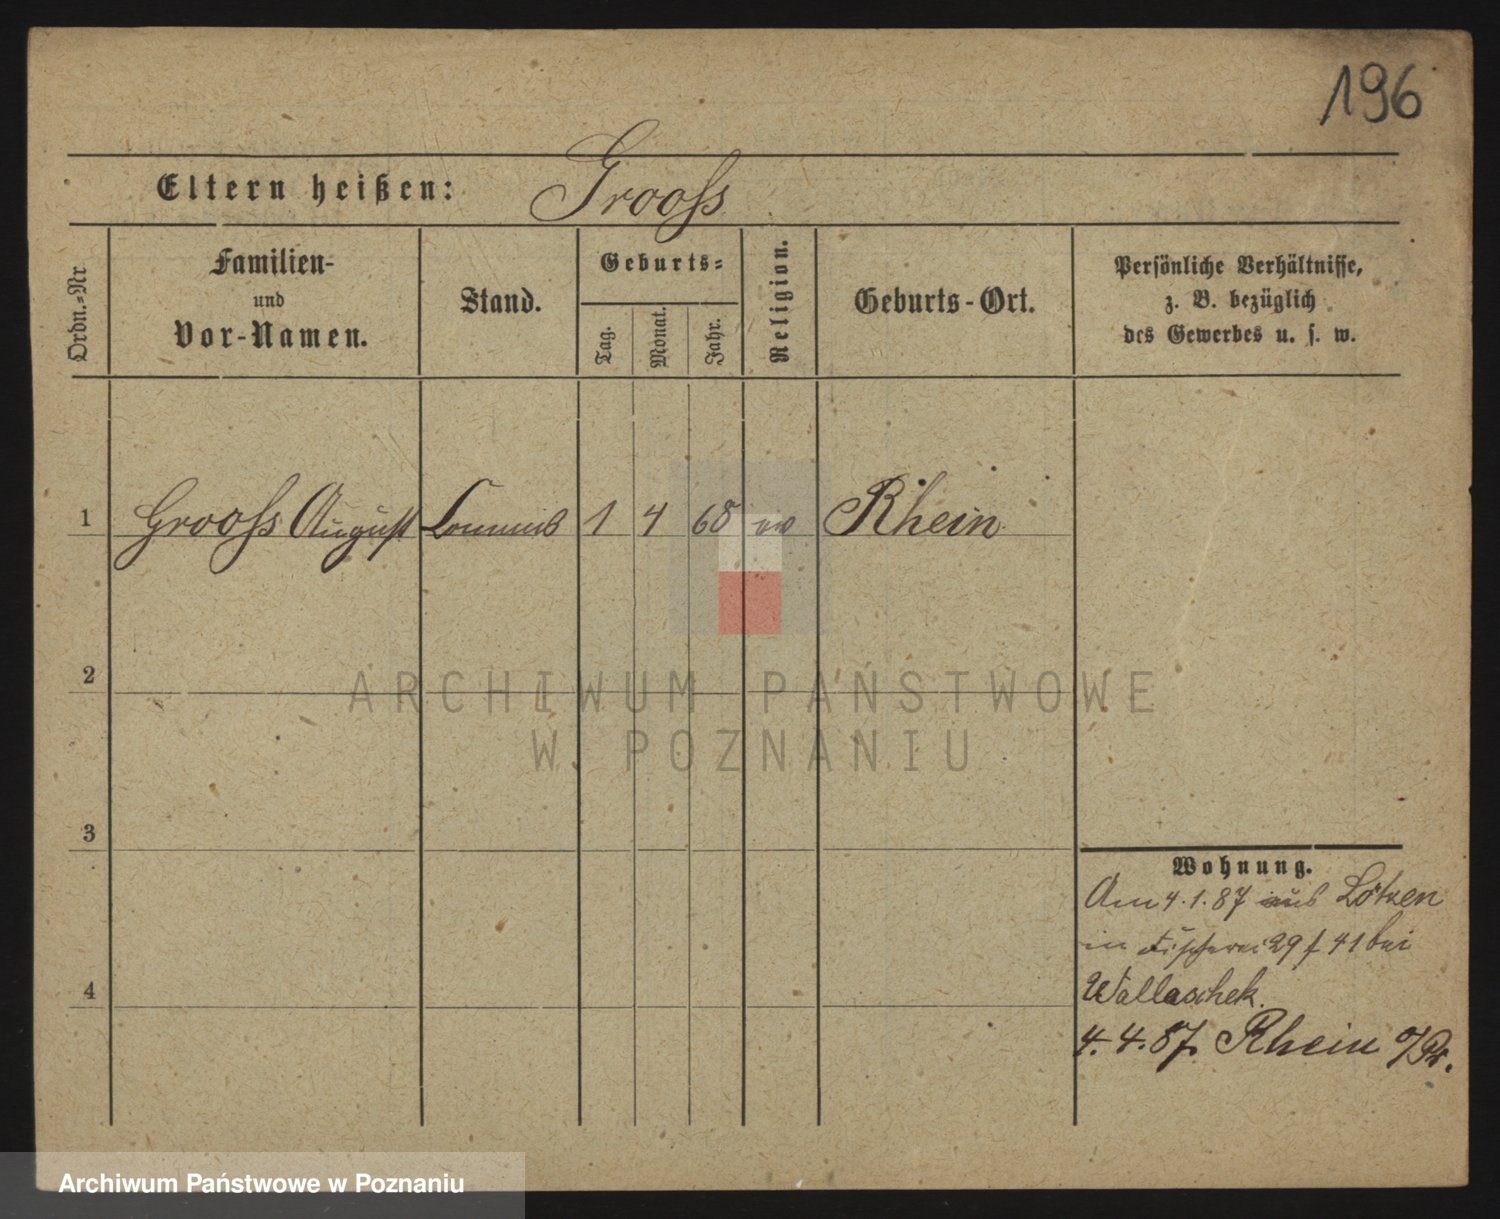 196
Eltern heißen: Grooß
Ordn.-Nr.
Familien-
und
Vor-Namen.
Stand.
Geburts-
Tag.
Monat.
Jahr.
Religion.
Geburts-Ort.
Persönliche Verhältnisse,
z. B. bezüglich
des Gewerbes u. s. w.
1 Grooß August Commis 1 4 68 ev Rhein
2
ARCHIWUM PAŃSTWOWE
W POZNANIU
3
Wohnung.
Am 4.1.87 aus Lötzen
in Fischerei 29 f 41 bei
4
Wallaschek.
4.4.87. Rhein o/Pr.
Archiwum Państwowe w Poznaniu